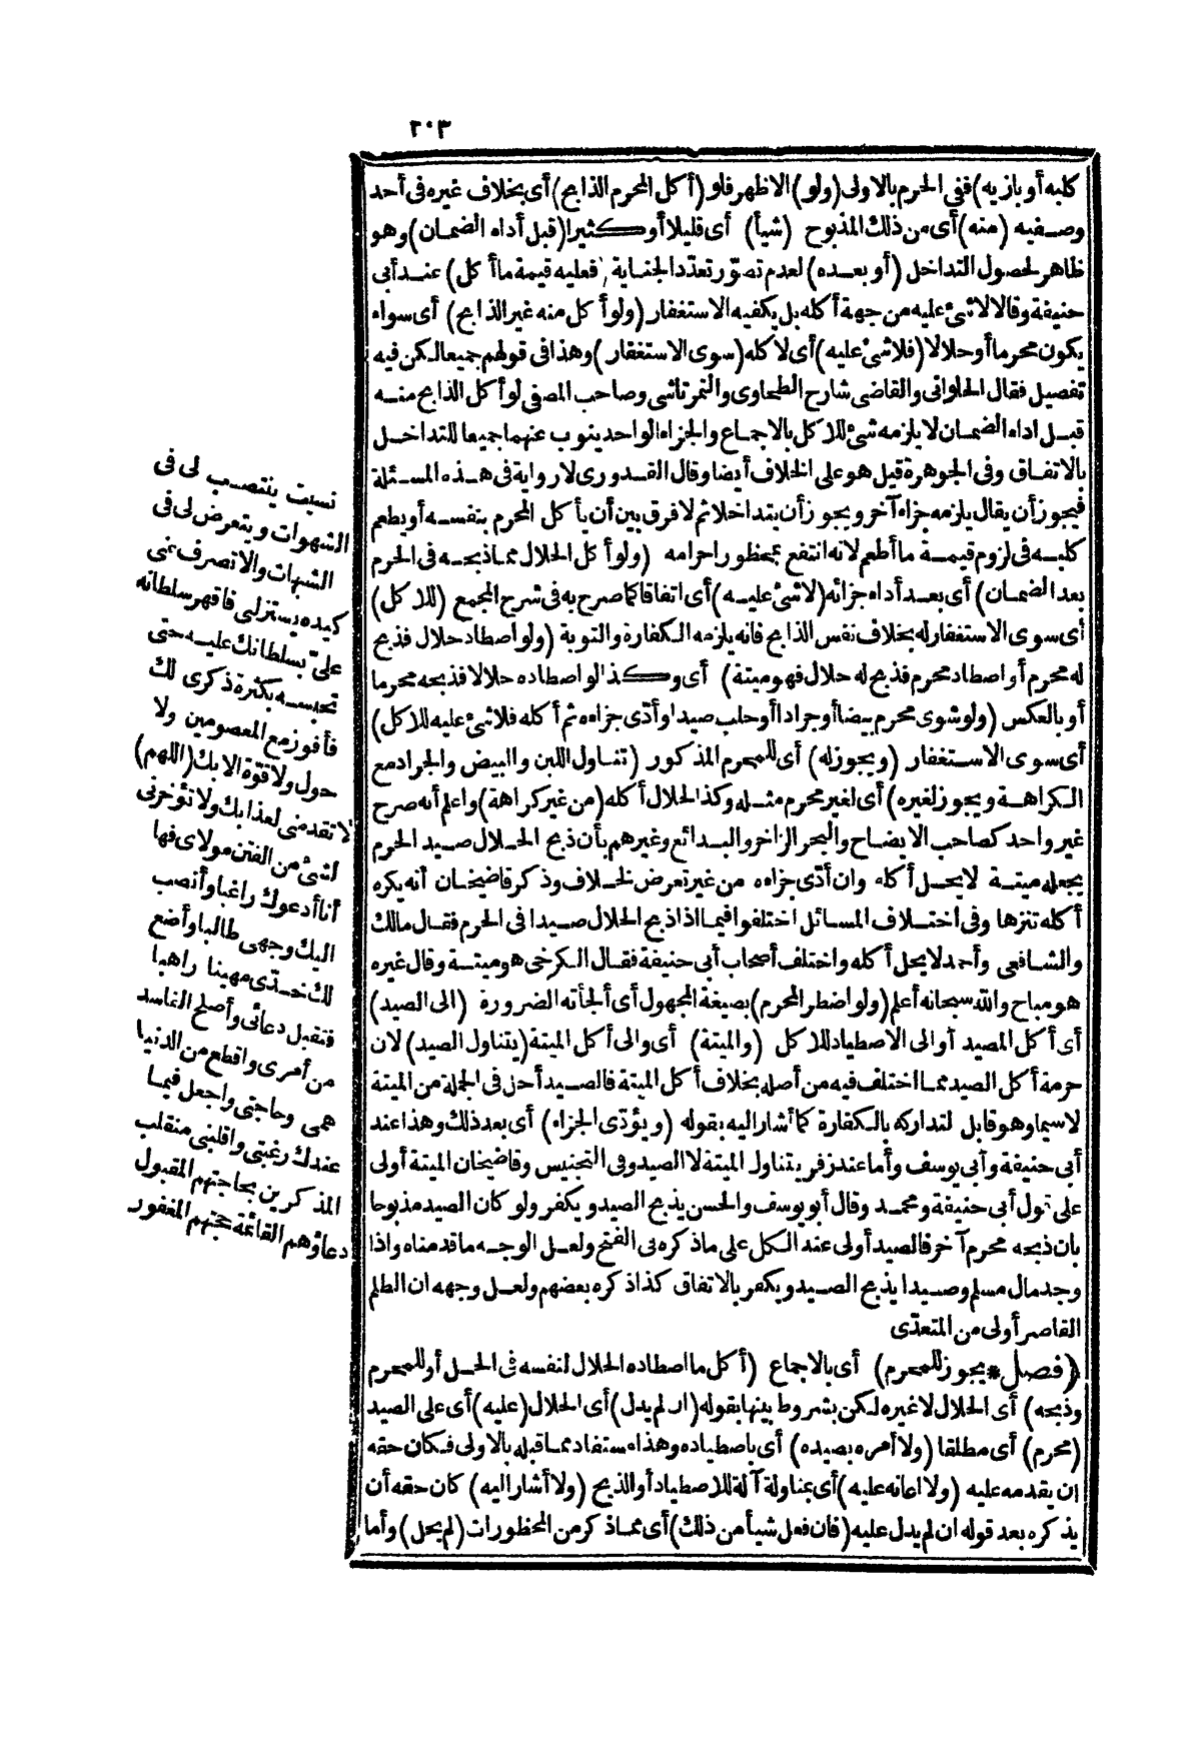 ٢٠٣
كلبه أو بازيه) ففي الحرم بالاولى (ولو) الاظهر فلو (أكل المحرم الذابح) أى بخلاف غيره فى أحد
وصفيه (منه) أى من ذلك المذبوح (شيأ) أى قليلا أو كثيرا (قبل أداء الضمان) وهو
ظاهر لحصول التداخل (أو بعده) لعدم تصوّر تعدّد الجناية (فعليه قيمة ما أكل) عند أبى
حنيفة وقالا لاشئ عليه من جهة أكله بل يكفيه الاستغفار (ولو أكل منه غير الذابح) أى سواء
يكون محرما أو حلالا (فلاشئ عليه) أى لاكله (سوى الاستغفار) وهذا فى قولهم جميعا لكن فيه
تفصيل فقال الحلوانى والقاضى شارح الطحاوى والتمرتاشى وصاحب المصفى لو أكل الذابح منه
قبل اداء الضمان لا يلزمه شئ للاكل بالاجماع والجزاء الواحد ينوب عنهما جميعا للتداخل
بالاتفاق وفى الجوهرة قيل هو على الخلاف أيضا وقال القدورى لا رواية فى هذه المسئلة
فيجوز أن يقال يلزمه جزاء آخر ويجوز أن يتداخلا ثم لا فرق بين أن يأكل المحرم بنفسه أو يطعم
كلبه فى لزوم قيمة ما أطعم لانه انتفع بمحظور احرامه (ولو أكل الحلال مما ذبحه فى الحرم
بعد الضمان) أى بعد أداء جزائه (لاشئ عليه) أى اتفاقا كما صرح به فى شرح المجمع (للاكل)
أى سوى الاستغفار له بخلاف نفس الذابح فانه يلزمه الكفارة والتوبة (ولو اصطاد حلال فذبح
له محرم أو اصطاد محرم فذبح له حلال فهو ميتة) أى وكذا لو اصطاده حلالا فذبحه محرما
أو بالعكس (ولو شوى محرم بيضا أو جرادا أو حلب صيدا وأدّى جزاءه ثم أكله فلاشئ عليه للاكل)
أى سوى الاستغفار (ويجوز له) أى للمحرم المذكور (تناول اللبن والبيض والجراد مع
الكراهة ويجوز لغيره) أى لغير محرم مثله وكذا الحلال أكله (من غير كراهة) واعلم أنه صرح
غير واحد كصاحب الايضاح والبحر الزاخر والبدائع وغيرهم بأن ذبح الحلال صيد الحرم
يجعله ميتة لا يحل أكله وان أدّى جزاءه من غير تعرض لخلاف وذكر قاضيخان أنه يكره
أكله تنزها وفى اختلاف المسائل اختلفوا فيما اذا ذبح الحلال صيدا فى الحرم فقال مالك
والشافعى وأحمد لا يحل أكله واختلف أصحاب أبى حنيفة فقال الكرخى هو ميتة وقال غيره
هو مباح والله سبحانه أعلم (ولو اضطر المحرم) بصيغة المجهول أى ألجأته الضرورة (الى الصيد)
أى أكل المصيد أو الى الاصطياد للاكل (والميتة) أى والى أكل الميتة (يتناول الصيد) لان
حرمة أكل الصيد مما اختلف فيه من أصله بخلاف أكل الميتة فالصيد أحل فى الجملة من الميتة
لاسيما وهو قابل لتداركه بالكفارة كما أشار اليه بقوله (ويؤدّى الجزاء) أى بعد ذلك وهذا عند
أبى حنيفة وأبى يوسف وأما عند زفر يتناول الميتة لا الصيد وفى التجنيس وقاضيخان الميتة أولى
على قول أبى حنيفة ومحمد وقال أبو يوسف والحسن يذبح الصيد ويكفر ولو كان الصيد مذبوحا
بان ذبحه محرم آخر فالصيد أولى عند الكل على ما ذكره فى الفتح ولعل الوجه ما قدمناه واذا
وجد مال مسلم وصيدا يذبح الصيد ويكفر بالاتفاق كذا ذكره بعضهم ولعل وجهه ان الظلم
القاصر أولى من المتعدّى
(فصل * يجوز للمحرم) أى بالاجماع (أكل ما اصطاده الحلال لنفسه فى الحل أو للمحرم
وذبحه) أى الحلال لا غيره لكن بشروط بينها بقوله (ان لم يدل) أى الحلال (عليه) أى على الصيد
(محرم) أى مطلقا (ولا أمره بصيده) أى باصطياده وهذا مستفاد مما قبله بالاولى فكان حقه
ان يقدمه عليه (ولا اعانه عليه) أى بمناولة آلة للاصطياد أو الذبح (ولا أشار اليه) كان حقه أن
يذكره بعد قوله ان لم يدل عليه (فان فعل شيأ من ذلك) أى مما ذكر من المحظورات (لم يحل) وأما
نسيت ينتصب لى فى
الشهوات ويتعرض لى فى
الشبهات والا تصرف عنى
كيده يستزلنى فاقهر سلطانه
علىّ بسلطانك عليه حتى
تحبسه بكثرة ذكرى لك
فأفوز مع المعصومين ولا
حول ولا قوّة الا بك (اللهم)
لا تقدمنى لعذابك ولا تؤخرنى
لشئ من الفتن مولاى فها
أنا أدعوك راغبا وأنصب
اليك وجهى طالبا وأضع
لك خدّى مهينا راهبا
فتقبل دعائى وأصلح الفاسد
من أمرى واقطع من الدنيا
همى وحاجتى واجعل فيما
عندك رغبتى واقلبنى منقلب
المذكرين بحاجتهم المقبول
دعاؤهم القائمة حجتهم المغفور